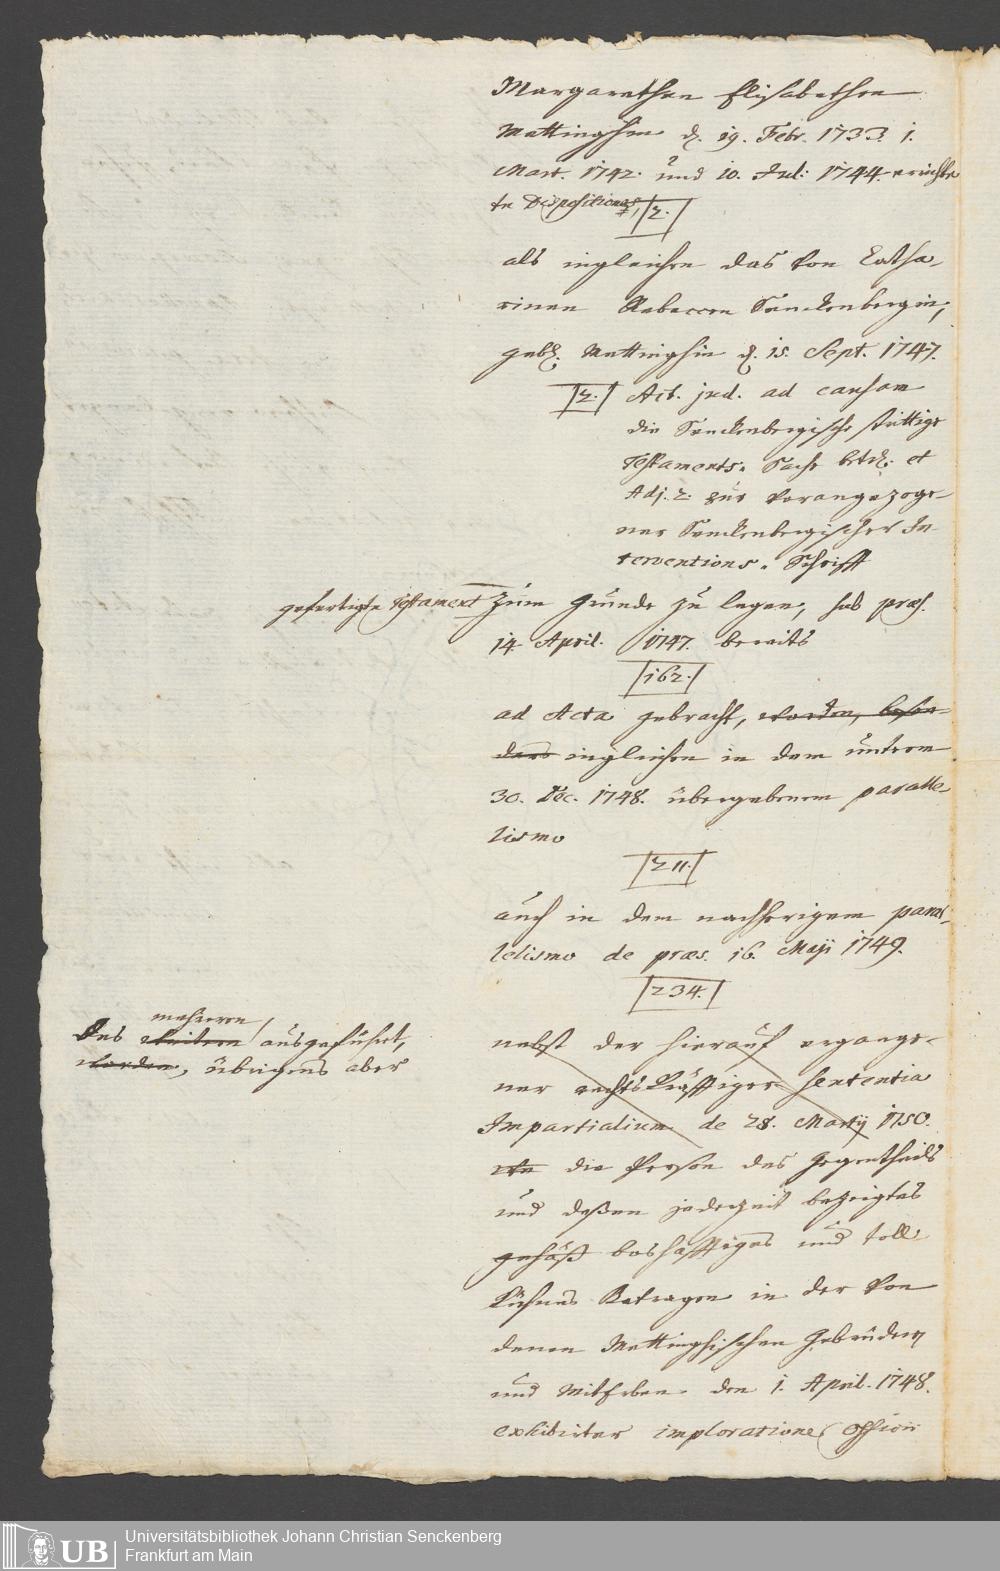 Margarethen Elisabethen
Mettinghin d. 19. Febr. 1733. 1.
Mart. 1742. und 10. Jul: 1744. errichte
te Dispositiones,
[2.]
als ingleichen das von Catha-
rinen Rebeccen Senckenbergin,
gebh. Mettinghin d. 15. Sept. 1747.
[2.] Act. jud. ad causam
die Senckenbergische strittige
Testaments-Sache betr. et
Adj. 2. zur vorangezoge-
ner Senckenbergischer In-
terventions-Schrifft
gefertigte Testament zum Grunde zu legen, sub præs.
14. April. 1747. bereits
[162.]
ad Acta gebracht, worden, beson-
ders ingleichen in dem unterm
30. Dec. 1748. übergebenem paralle-
lismo
[211.]
auch in dem nachherigem paral-
lelismo de præs. 16. Maji 1749.
[234.]
mehreren
des weitern ausgeführt,
worden, übrigens aber
nebst der hierauf ergange-
ner rechtskräfftiger Sententia
Impartialium de 28. Martij 1750.
die Person des Gegentheils
und deßen jederzeit bezeigtes
gehäß boshafftiges und toll-
kühnes Betragen in der von
denen Mettinghischen Gebrüdern
und Miterben den 1. April. 1748.
exhibirter imploratione Officii
UB
Universitätsbibliothek Johann Christian Senckenberg
Frankfurt am Main